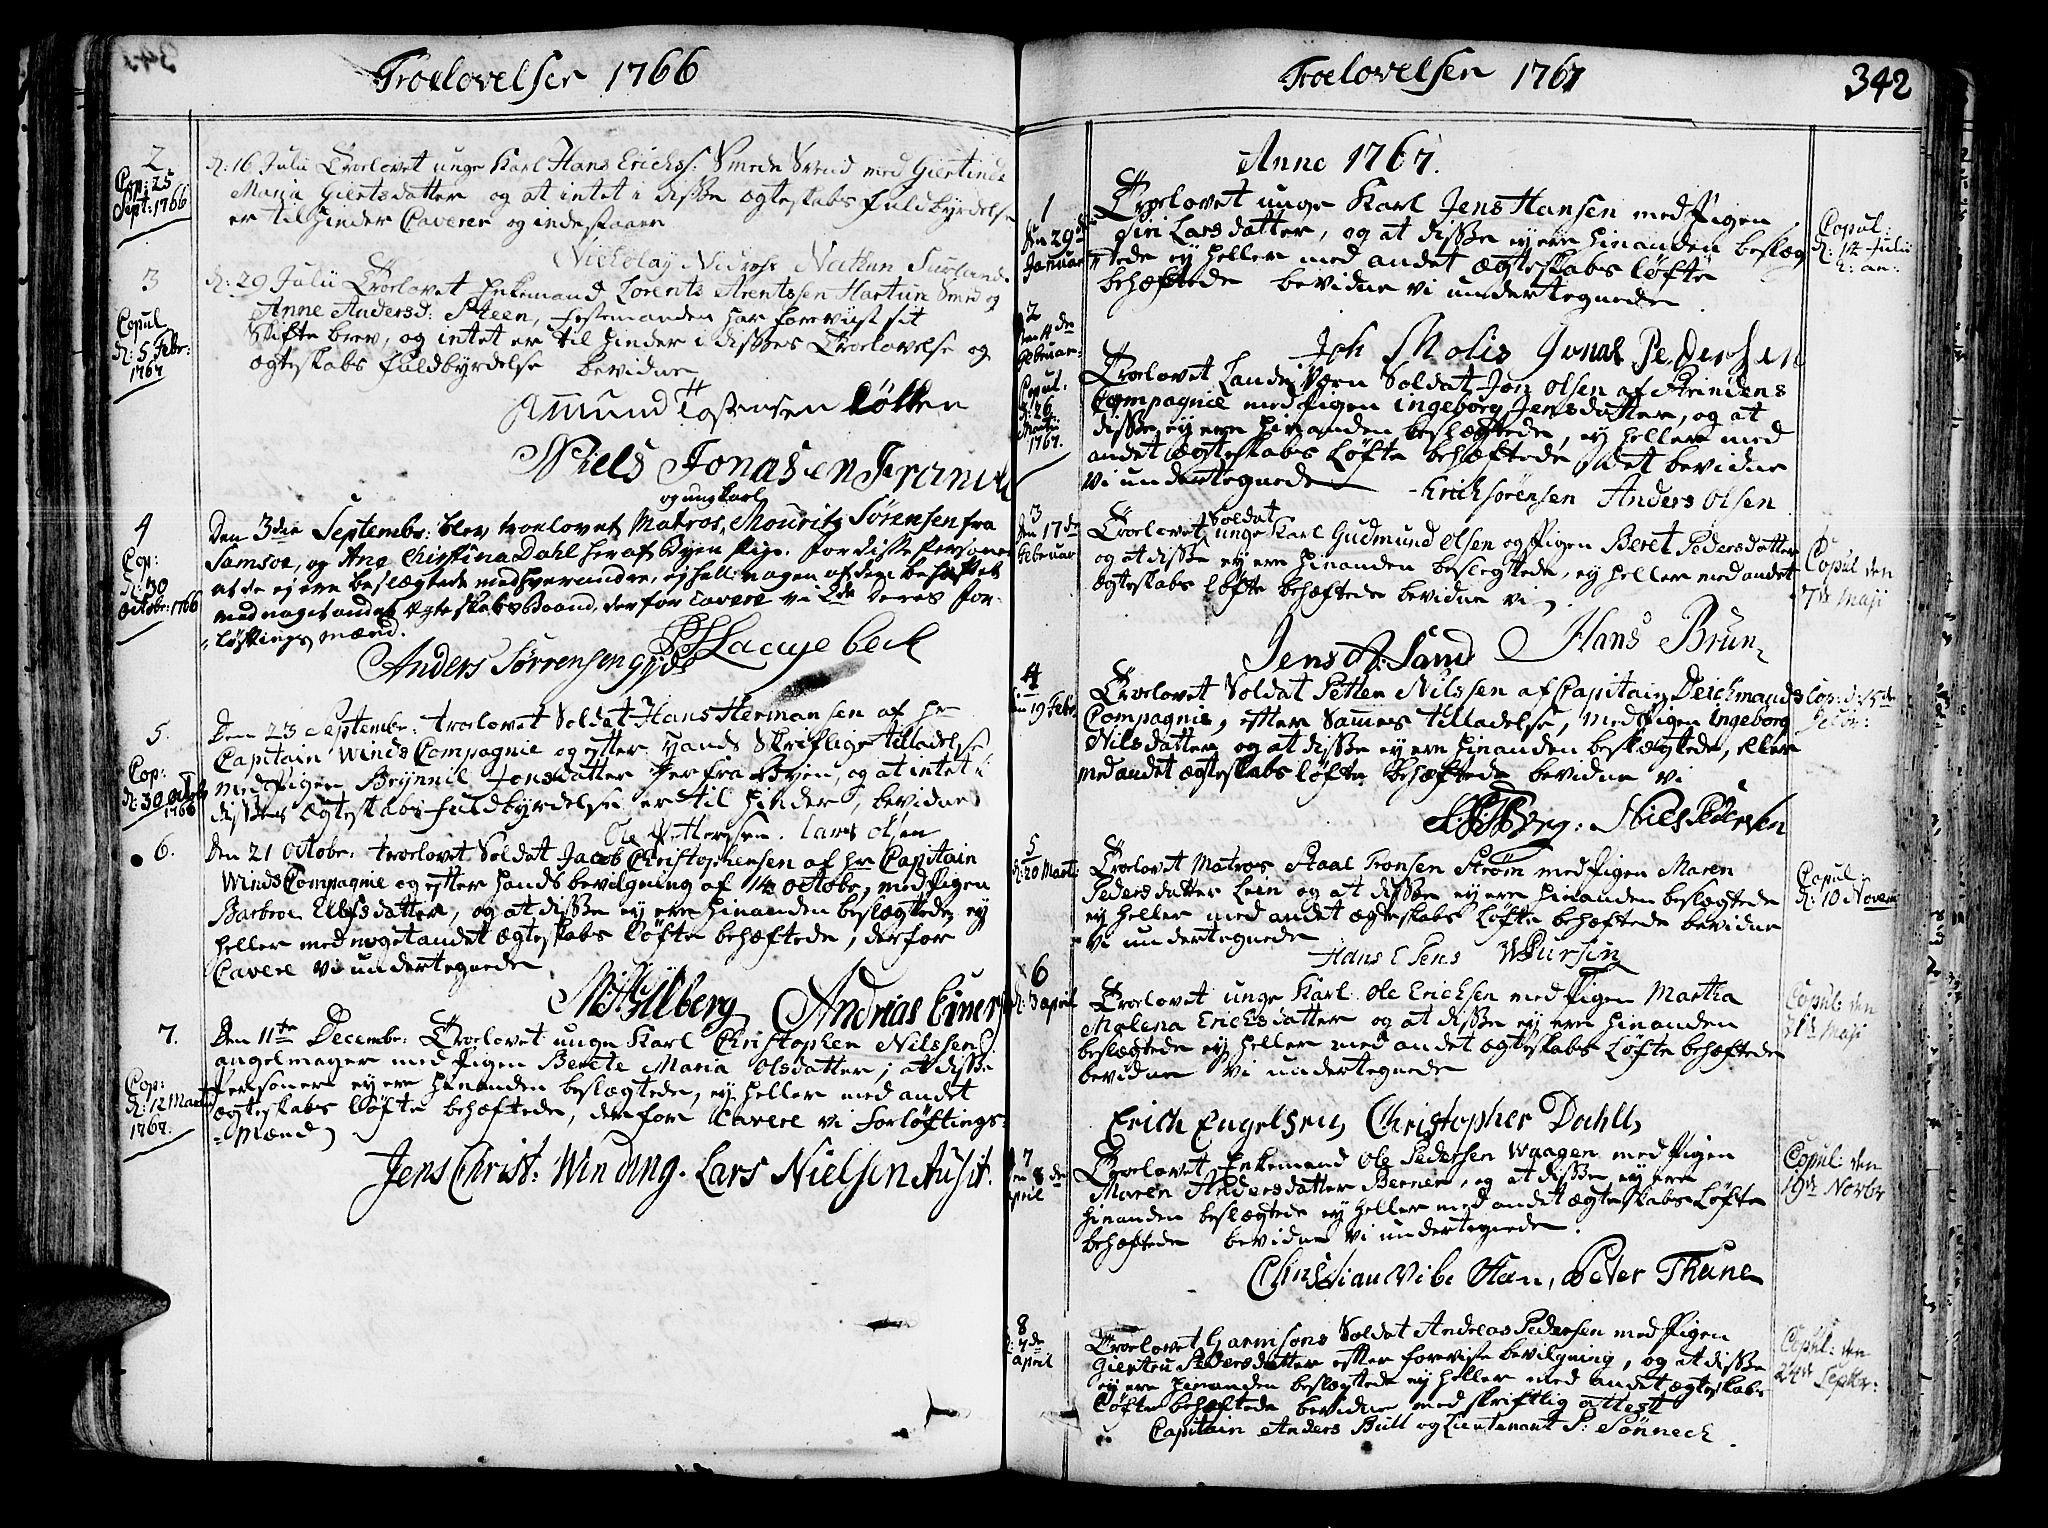 Troelovelser 1766
2
Cop: 25
Sept: 1766
d: 16 Julii Troelovet unge Karl Hans Erichs: Smede Svend med Giertrud
Maria Giertsdatter og at intet i disse ægteskabs fuldbyrdelse
er til hinder Caverer og indestaaer
Nickolaj Nidrose Nathan Surland
3
Copul
d: 5 Febr:
1767
d: 29 Julii Troelovet Enkemand Lorents Arentssen Hartun Smed og
Anne Andersd: Steen, festemanden har foreviist sit
Skifte brev, og intet er til hinder i disses Troelovelse og
ægteskabs fuldbyrdelse bevidner
Amund Tostensen Løkken
Niels Jonasen
4
Cop:
d: 30
Octobr: 1766
og ung karl
Den 3die Septembr: blev troelovet Matros, Mouritz Sørensen fra
Samsøe, og Ane Christina Dahl her af Byen Pige. for disse Personer
at de ej ere beslægtede med hverandre, ej heller nogen af dem behæftet
med noget andet Ægteskabs Baand, derfor Cavere vi 2de deres for-
løftings mænd.
Anders Sørrensen
5.
Cop:
d: 30 Octob
1766
Den 23 Septembr: troelovet Soldat Hans Hermansen af Hr
Capitain Winds Compagnie og efter Hands Skriftlige tilladelse
med Pigen Brynnil Jonsdatter her fra Byen, og at intet i
disses Ægteskabs fuldbyrdelse er til hinder, bevidner
Ole Pettersen. Lars Olsen
6.
Den 21 Octobr: troelovet Soldat Jacob Christophersen af Hr Capitain
Winds Compagnie og efter hands bevilgning af 14 Octobr, med Pigen
Barbroe Ellefsdatter, og at disse ey ere hinanden beslægtede ey
heller med noget andet Ægteskabs løfte behæftede, derfor
Cavere vi undertegnede
Andreas Einers
7.
Cop:
d: 12 Martii
1767.
Den 11te Decembr: Troelovet unge Karl Christopher Nilssen
angelmager med Pigen Berete Maria Olsdatter; at disse
Personer ey ere hinanden beslægtede, ey heller med andet
ægteskabs løfte behæftede, derfore Cavere vi forløftings-
Mænd
Jens Christ: Winding. Lars Nielsen
Troelovelser 1767
342
Anno 1767.
1
Den 29de
Januar
Troelovet unge Karl Jens Hansen med Pigen
Siri Larsdatter, og at disse ey ere hinanden beslæg
tede ey heller med andet ægteskabs løfte
behæftede bevidner vi undertegnede
Copul:
d: 14 Julii
h: an:
Joh Molis Jonas Pedersen
2
Den 4de
Februar:
Copul:
d: 26
Martii
1767.
Troelovet Lande Værn Soldat Jon Olsen af Strindens
Compagnie med Pigen Ingeborg Jensdatter, og at
disse ey ere hinanden beslægtede, ey heller med
andet ægteskabs løfte behæftede, det bevidner
vi undertegnede
Erich Sørensen Anders Olsen
3
Den 17de
Februar
Soldat
Troelovet unge Karl Gudmund Olsen og Pigen Beret Pedersdatter
og at disse ey ere hinanden beslegtede, ey heller med andet
ægteskabs løfte behæftede bevidner vi
Copul den
7de Maji
Jens A: Sand Hans Brun
4
den 19 Febr
Troelovet Soldat Petter Nilssen af Capitain Deichmands
Compagnie, efter Sammes tilladelse, med Pigen Ingeborg
Nilsdatter og at disse ey ere hinanden beslægtede, eller
med andet ægteskabs løfte behæftede bevidner vi
Niels Pedersen
5
d: 20 Marti
Troelovet Matros Staal Tronsen Strøm med Pigen Maren
Pedersdatter Leen og at disse ey ere hinanden beslægtede
ey heller med andet ægteskabs løfte behæftede bevidner
vi undertegnede
Copul:
d: 10 Novem
6
d: 3 april
Troelovet unge Karl Ole Erichsen med Pigen Martha
Malena Erichsdatter og at disse ey ere hinanden
beslægtede ey heller med andet ægteskabs løfte behæftede
bevidner vi undertegnede
Copul: den
21de Maji
Erich Engelsen, Christopher Dahll,
7
den 8de
april
Troelovet Enkemand Ole Pedersen Waagen med Pigen
Maren Andersdatter Berner, og at disse ey ere
hinanden beslægtede ey heller med andet ægteskabs løfte
behæftede bevidner vi undertegnede.
Copul: den
19de Novbr
Christian Vibe Peter Thune
8
april
Troelovet Garnisons Soldat Andreas Pedersen med Pigen
Giertru Pedersdatter efter foreviste bevilgning, og at disse
ey ere hinanden beslægtede ey heller med andet ægteskabs
løfte behæftede bevidner med skriftlig attest
Capitain Anders Bull og Lieutenant P: Sønneck.
Copul: den
24de Septbr: